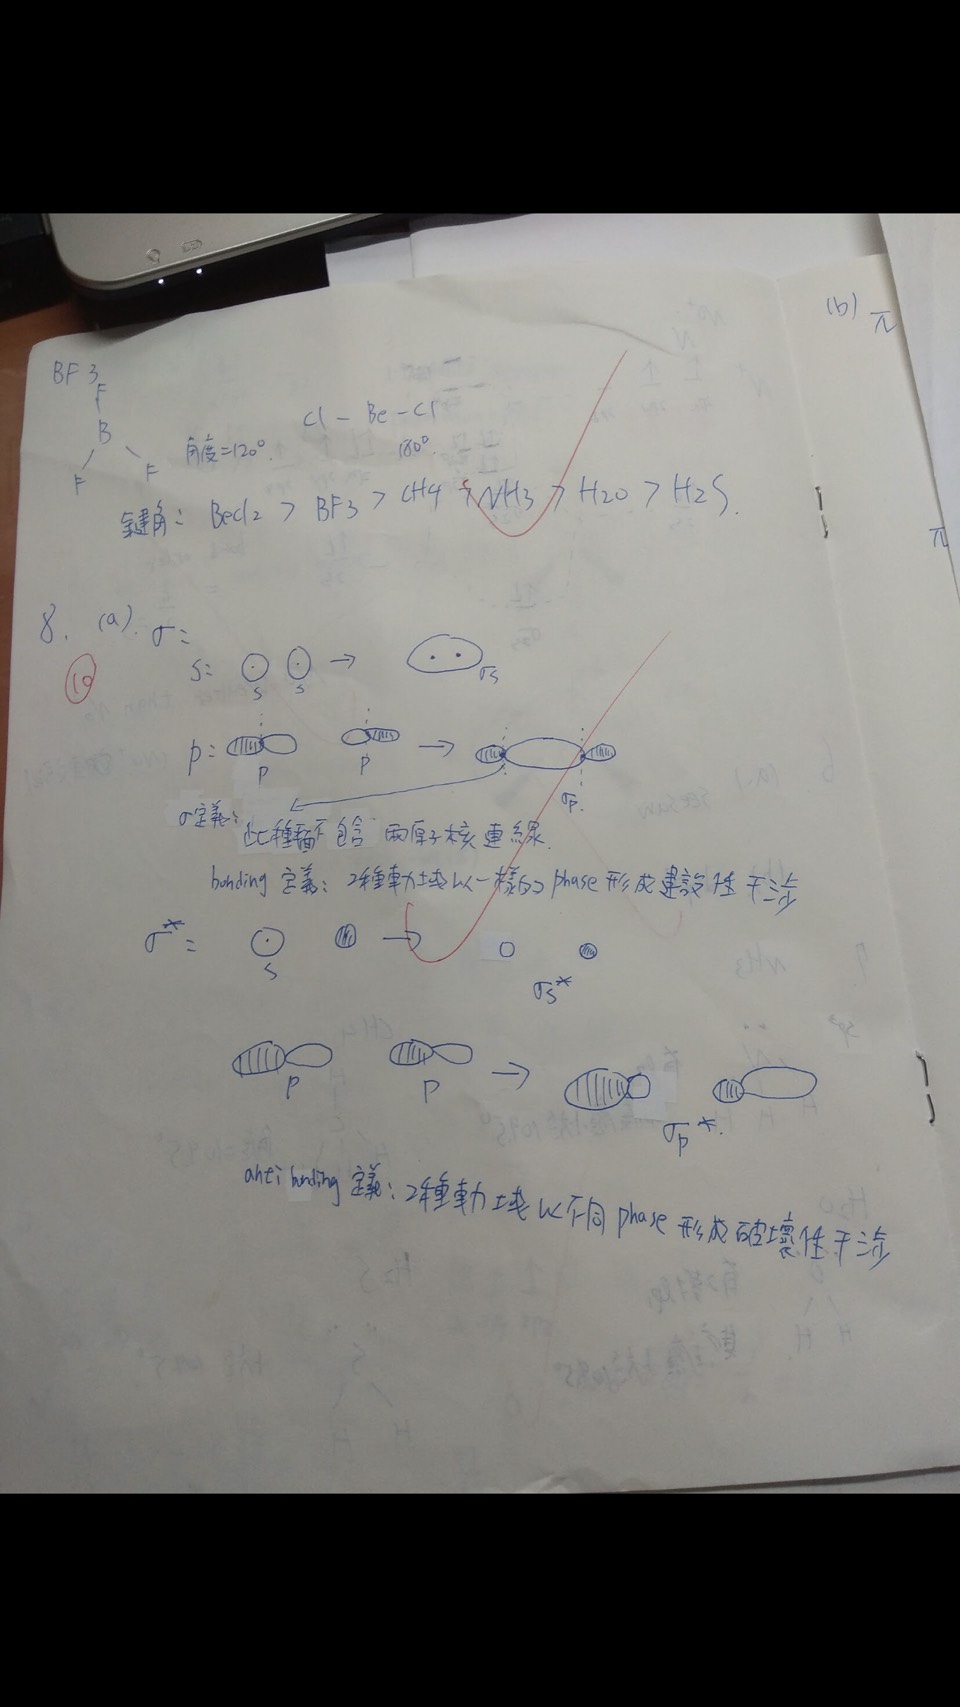 BF3
F
B
F
F
角度=120°.
Cl - Be - Cl
180°
鍵角: BeCl2 > BF3 > CH4 > NH3 > H2O > H2S.
8. (a). σ=
10
s= s s → σs
p= p p → σp.
σ定義: 此種 不包含 兩原子核連線.
bonding 定義: 2種軌域以一樣的 phase 形成建設性干涉
σ*= s → σs*
p p → σp*.
antibonding 定義: 2種軌域以不同 phase 形成破壞性干涉
(b) π
π